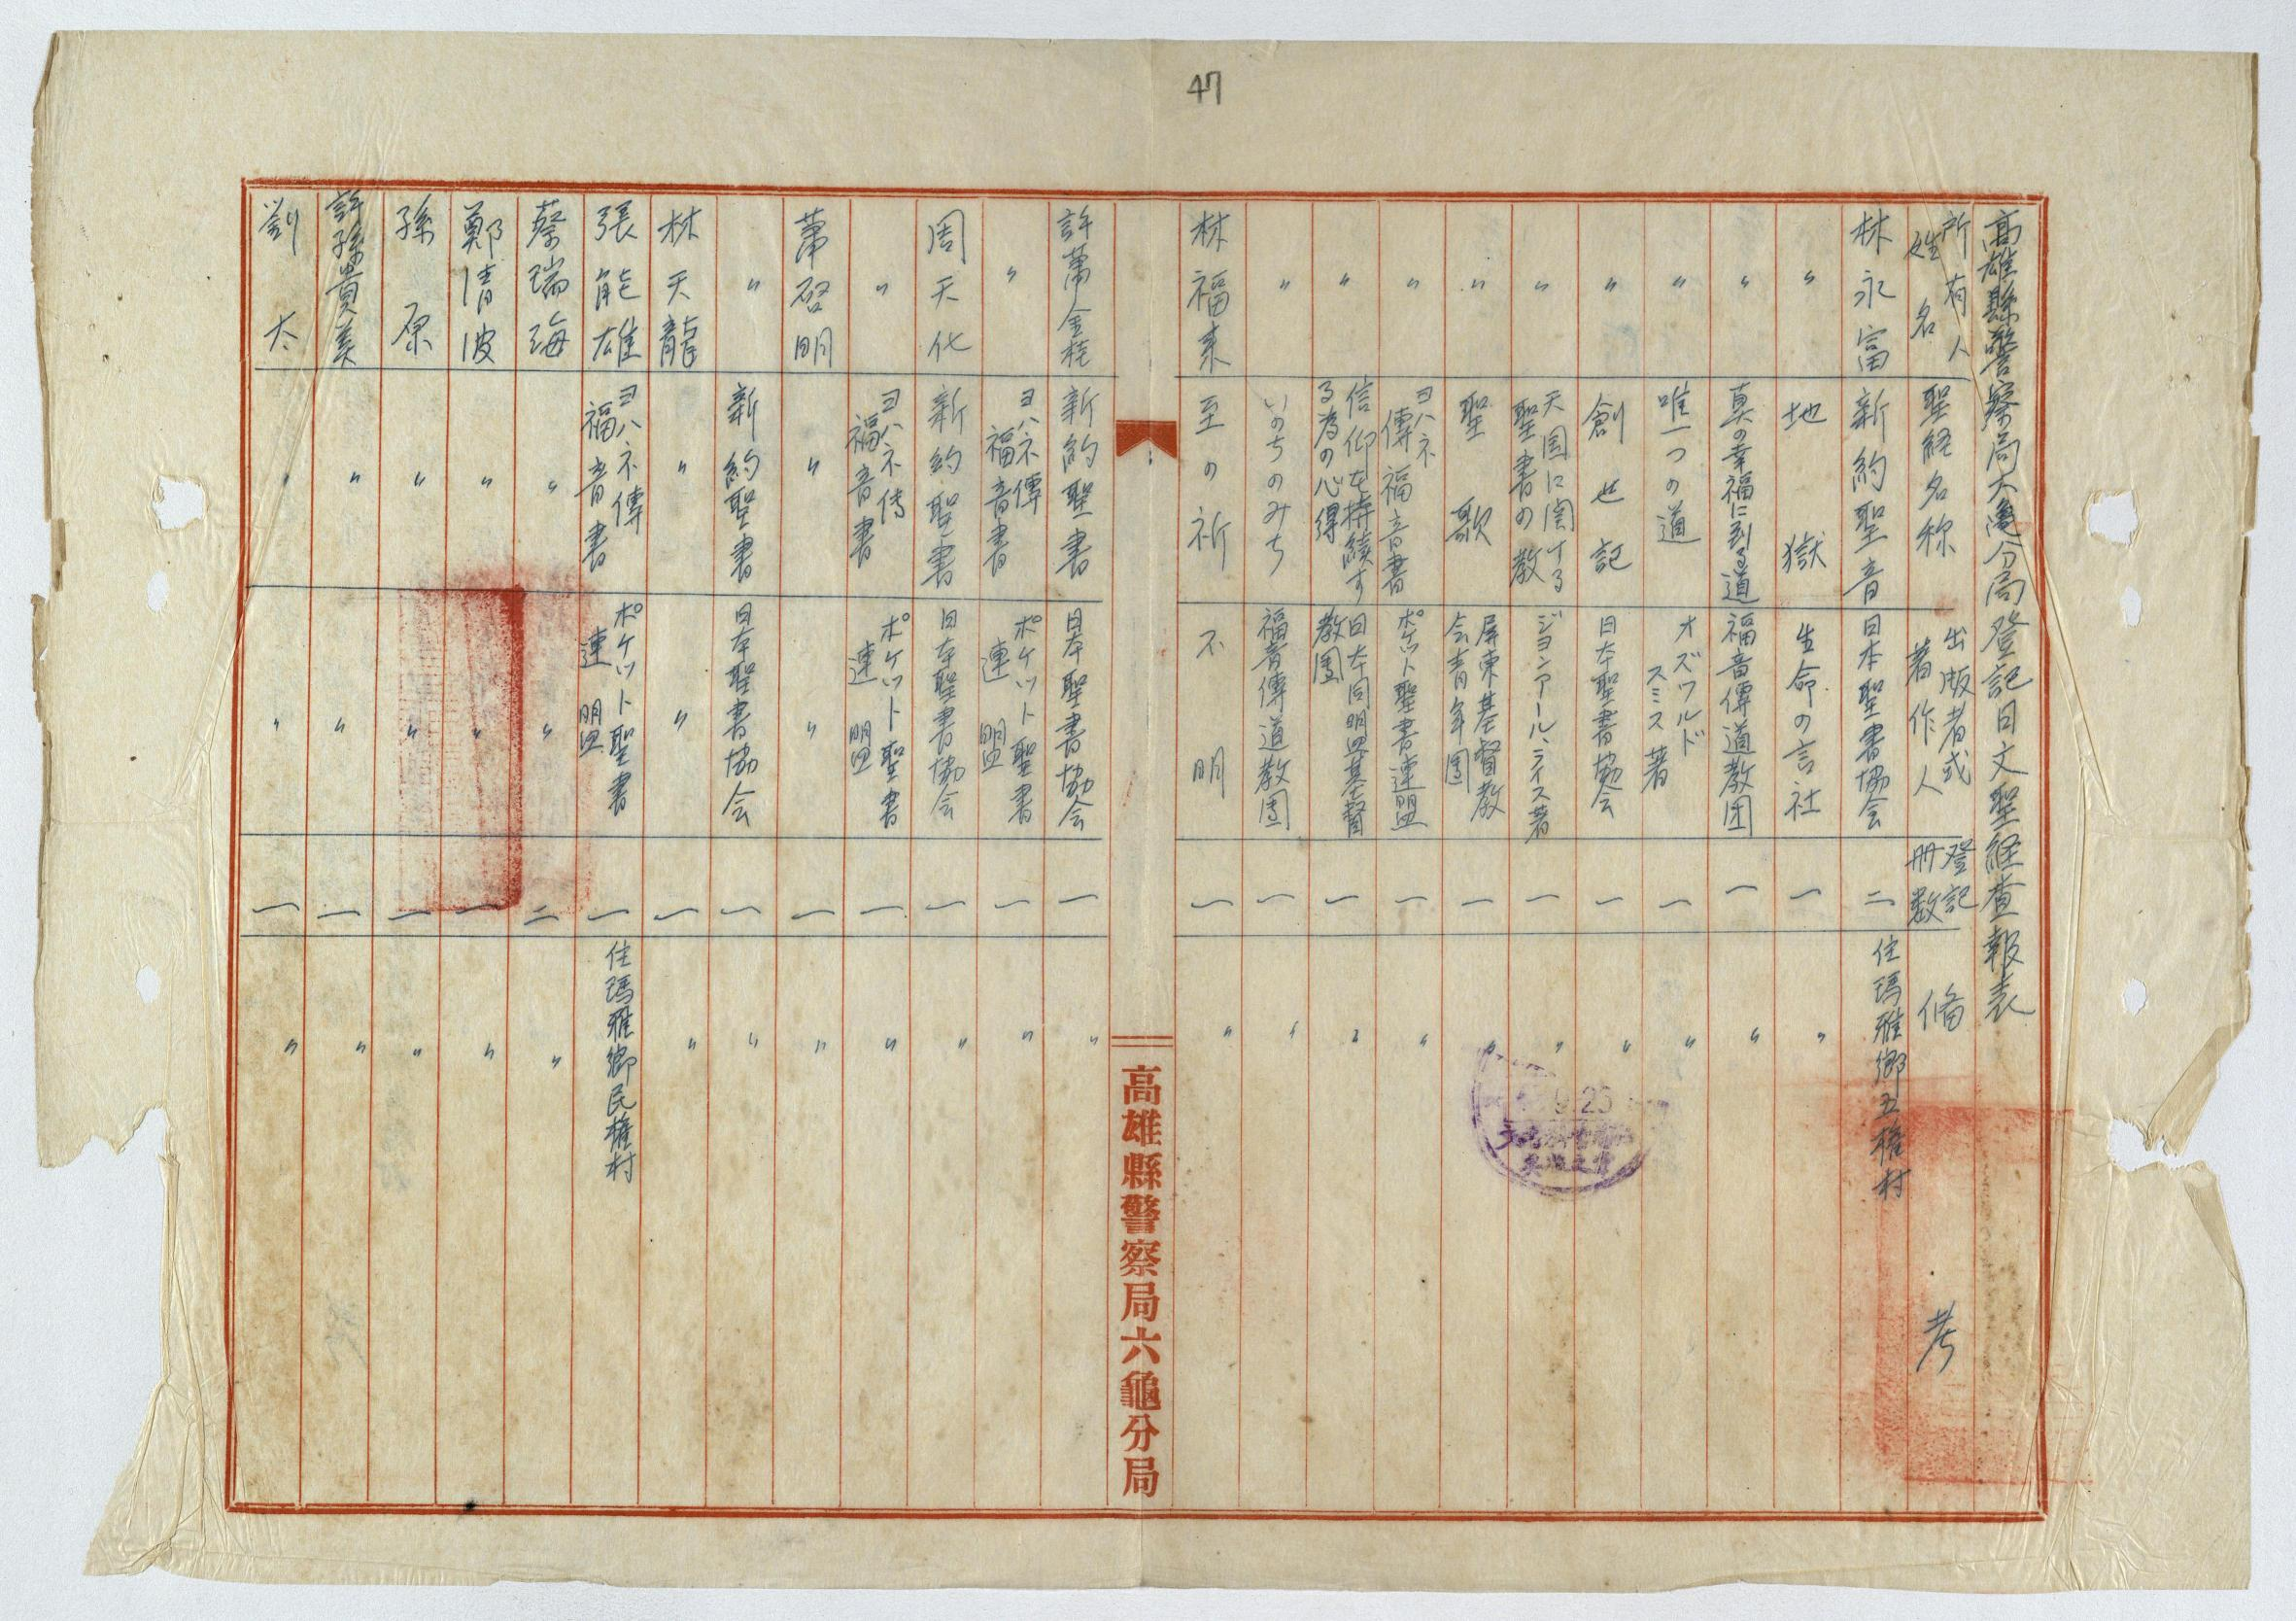 47
高雄縣警察局六龜分局登記日文聖経查報表
所有人姓名 聖経名称 出版者或著作人 登記冊数 備考
林永富 新約聖音 日本聖書協会 二 住瑪雅鄉五權村
〃 地獄 生命の言社 一 〃
〃 真の幸福に到る道 福音傳道教团 一 〃
〃 唯一つの道 オズワルドスミス著 一 〃
〃 創世記 日本聖書協会 一 〃
〃 天国に関する聖書の教 ジョンアール、ライス著 一 〃
〃 聖歌 屏東基督教会青年團 一 〃
〃 ヨハネ傳福音書 ポケット聖書連盟 一 〃
〃 信仰を持續する為の心得 日本同盟基督教團 一 〃
〃 いのちのみち 福音傳道教團 一 〃
林福来 至の祈 不明 一 〃
高雄縣警察局六龜分局
許萧金桂 新約聖書 日本聖書協会 一 〃
〃 ヨハネ傳福音書 ポケット聖書連盟 一 〃
周天化 新約聖書 日本聖書協会 一 〃
〃 ヨハネ传福音書 ポケット聖書連盟 一 〃
萧啓明 〃 〃 一 〃
〃 新約聖書 日本聖書協会 一 〃
林天龍 〃 〃 一 〃
張能雄 ヨハネ傳福音書 ポケット聖書連盟 一 住瑪雅鄉民權村
蔡瑞海 〃 〃 二 〃
鄭清波 〃 〃 一 〃
孫原 〃 〃 一 〃
許孫貴美 〃 〃 一 〃
劉太 〃 〃 一 〃